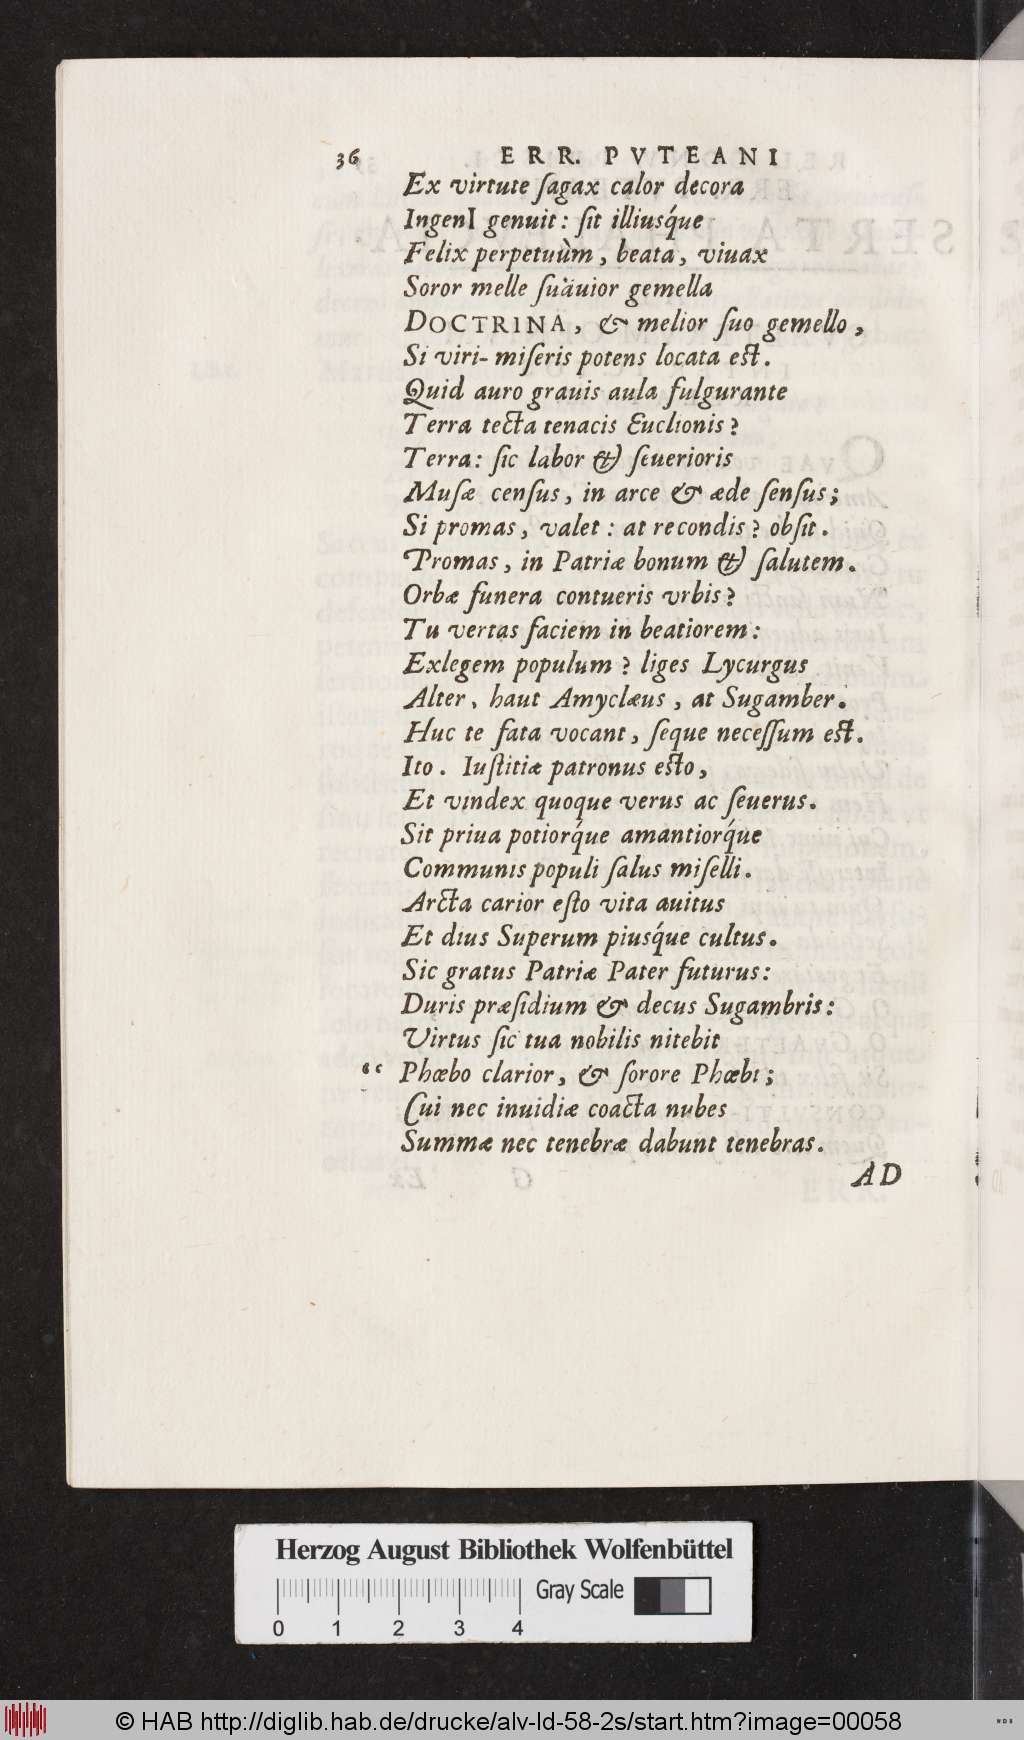 36 ERR. PVTEANI
Ex virtute ſagax calor decora
IngenI genuit: ſit illiusq́ue
Felix perpetuùm, beata, viuax
Soror melle ſuäuior gemella
DOCTRINA, & melior ſuo gemello,
Si viri- miſeris potens locata eſt.
Quid auro grauis aula fulgurante
Terra tecta tenacis Euclionis?
Terra: ſic labor & ſeuerioris
Muſæ cenſus, in arce & æde ſenſus;
Si promas, valet: at recondis? obſit.
Promas, in Patriæ bonum & ſalutem.
Orbæ funera contueris vrbis?
Tu vertas faciem in beatiorem:
Exlegem populum? liges Lycurgus
Alter, haut Amyclæus, at Sugamber.
Huc te fata vocant, ſeque neceſſum eſt.
Ito. Iuſtitiæ patronus eſto,
Et vindex quoque verus ac ſeuerus.
Sit priua potiorq́ue amantiorq́ue
Communis populi ſalus miſelli.
Arcta carior eſto vita auitus
Et dius Superum piusq́ue cultus.
Sic gratus Patriæ Pater futurus:
Duris præſidium & decus Sugambris:
Virtus ſic tua nobilis nitebit
“ Phœbo clarior, & ſorore Phœbi;
Cui nec inuidiæ coacta nubes
Summæ nec tenebræ dabunt tenebras.
AD
Herzog August Bibliothek Wolfenbüttel
Gray Scale
0 1 2 3 4
© HAB http://diglib.hab.de/drucke/alv-ld-58-2s/start.htm?image=00058